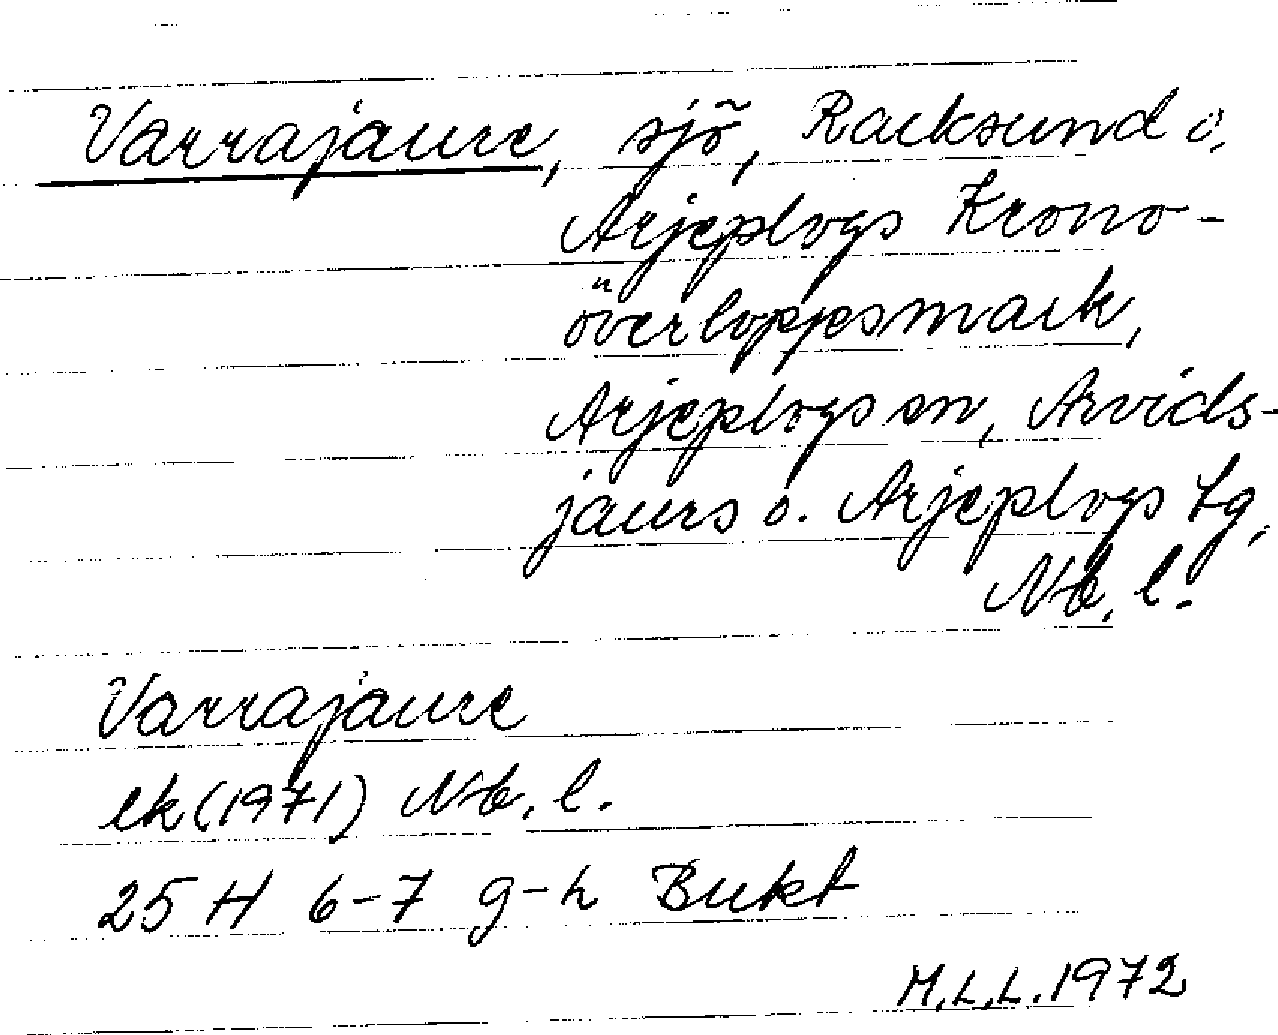 Varrajaure, sjö, Racksund o,
Arjeplogs Krono-
överloppsmark,
Arjeplogs sn, Arvids-
jaurs o. Arjeplogs tg,
Nb. l.
Varrajaure
ek (1971) Nb. l.
25 H 6-7 g-h Bukt
M.L.L. 1972